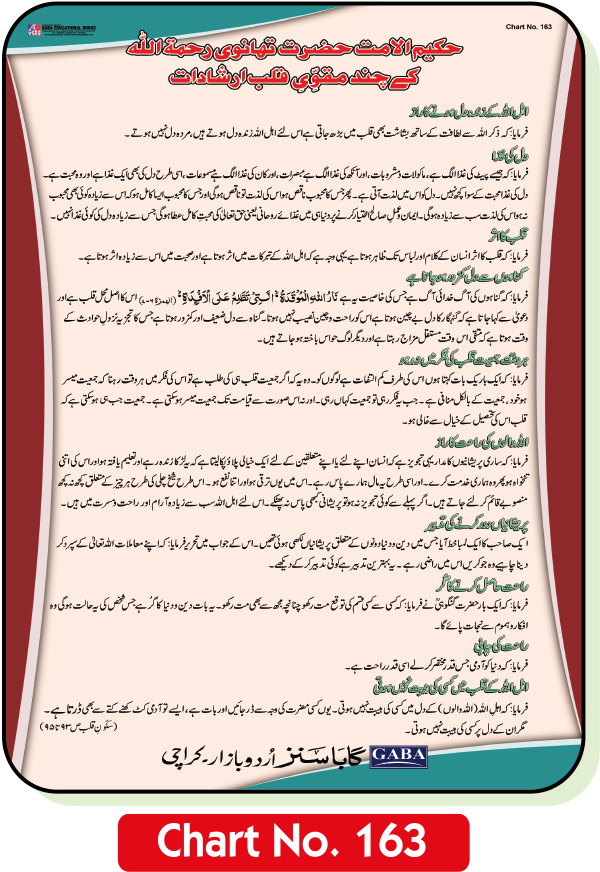 GABA EDUCATIONAL BOOKS
Chart No. 163
حکیم الامت حضرت تھانوی رحمۃ اللہ
کے چند مقوّیِ قلب ارشادات
اہل اللہ کے زندہ دل ہونے کا راز
فرمایا: کہ ذکر اللہ سے لطافت کے ساتھ بشاشت بھی قلب میں بڑھ جاتی ہے اس لئے اہل اللہ زندہ دل ہوتے ہیں، مردہ دل نہیں ہوتے۔
دل کی غذا
فرمایا: کہ جیسے پیٹ کی غذا الگ ہے، ماکولات ومشروبات، اور آنکھ کی غذا الگ ہے مبصرات، اور کان کی غذا الگ ہے مسموعات، اسی طرح دل کی بھی ایک غذا ہے اور وہ محبت ہے۔
دل کی غذا محبت کے سوا کچھ نہیں۔ دل کو اس میں لذت آتی ہے۔ پھر جس کا محبوب ناقص ہو اس کی لذت تو ناقص ہوگی اور جس کا محبوب ایسا کامل ہو کہ اس سے زیادہ کوئی بھی محبوب
نہ ہو اس کی لذت سب سے زیادہ ہوگی۔ ایمان وعملِ صالح اختیار کرنے پر دنیا ہی میں غذائے روحانی یعنی حق تعالیٰ کی محبتِ کامل عطا ہوگی جس سے زیادہ دل کی کوئی غذا نہیں۔
قلب کا اثر
فرمایا: کہ قلب کا اثر انسان کے کلام اور لباس تک ظاہر ہوتا ہے یہی وجہ ہے کہ اہل اللہ کے تبرکات میں اثر ہوتا ہے اور صحبت میں اس سے زیادہ اثر ہوتا ہے۔
گناہوں سے دل کمزور ہو جاتا ہے
فرمایا: کہ گناہوں کی آگ خدائی آگ ہے جس کی خاصیت یہ ہے نَارُ اللّٰهِ الْمُوْقَدَةُ ۙ الَّتِیْ تَطَّلِعُ عَلَی الْاَفْـِٕدَةِ ؕ (الہمزۃ ۶-۷) اس کا اصل محل قلب ہے اور
دعویٰ سے کہا جاتا ہے کہ گنہگار کا دل بے چین ہوتا ہے اس کو راحت وچین نصیب نہیں ہوتا۔ گناہ سے دل ضعیف اور کمزور ہوتا ہے جس کا تجزیہ نزولِ حوادث کے
وقت ہوتا ہے کہ متقی اس وقت مستقل مزاج رہتا ہے اور دیگر لوگ حواس باختہ ہو جاتے ہیں۔
ہر وقت جمعیت قلب کی فکر میں نہ رہو
فرمایا: کہ ایک باریک بات کہتا ہوں اس کی طرف کم التفات ہے لوگوں کو۔ وہ یہ کہ اگر جمعیتِ قلب ہی کی طلب ہے تو اس کی فکر میں ہر وقت رہنا کہ جمعیت میسر
ہو خود، جمعیت کے بالکل منافی ہے۔ جب یہ فکر رہی تو جمعیت کہاں رہی۔ اور نہ اس صورت سے قیامت تک جمعیت میسر ہو سکتی ہے۔ جمعیت جب ہی ہو سکتی ہے کہ
قلب اس کی تحصیل کے خیال سے خالی ہو۔
اللہ والوں کی راحت کا راز
فرمایا: کہ ساری پریشانیوں کا مدار یہی تجویز ہے کہ انسان اپنے لئے یا اپنے متعلقین کے لئے ایک خیالی پلاؤ پکا لیتا ہے کہ یہ لڑکا زندہ رہے اور تعلیم یافتہ ہو اور اس کی اتنی
تنخواہ ہو پھر وہ ہماری خدمت کرے۔ اور اسی طرح یہ مال ہمارے پاس رہے۔ اس میں یوں ترقی ہو اور اتنا نفع ہو۔ اس طرح شیخ چلی کی طرح ہر چیز کے متعلق کچھ نہ کچھ
منصوبے قائم کر لئے جاتے ہیں۔ اگر پہلے سے کوئی تجویز نہ ہو تو پریشانی کبھی پاس نہ پھٹکے۔ اس لئے اہل اللہ سب سے زیادہ آرام اور راحت ومسرت میں ہیں۔
پریشانیاں دور کرنے کی تدبیر
ایک صاحب کا ایک لمبا خط آیا جس میں دین ودنیا دونوں کے متعلق پریشانیاں لکھی ہوئی تھیں۔ اس کے جواب میں تحریر فرمایا: کہ اپنے معاملات اللہ تعالیٰ کے سپرد کر
دینا چاہیے وہ جو کریں اس میں راضی رہے۔ یہ بہترین تدبیر ہے کوئی تدبیر کر کے دیکھے۔
راحت حاصل کرنے کا گُر
فرمایا: کہ ایک بار حضرت گنگوہیؒ نے فرمایا: کہ کسی سے کسی قسم کی توقع مت رکھو چنانچہ مجھ سے بھی مت رکھو۔ یہ بات دین ودنیا کا گُر ہے جس شخص کی یہ حالت ہوگی وہ
افکار وہموم سے نجات پائے گا۔
راحت کی چابی
فرمایا: کہ دنیا کو آدمی جس قدر مختصر کر لے اسی قدر راحت ہے۔
اہل اللہ کے قلب میں کسی کی ہیبت نہیں ہوتی
فرمایا: کہ اہل اللہ (اللہ والوں) کے دل میں کسی کی ہیبت نہیں ہوتی۔ یوں کسی مضرت کی وجہ سے ڈر جائیں اور بات ہے، ایسے تو آدمی کٹ کھنے کتے سے بھی ڈرتا ہے۔
مگر ان کے دل پر کسی کی ہیبت نہیں ہوتی۔ (سکونِ قلب ص ۹۳ تا ۹۵)
GABA گابا سنز اُردو بازار۔ کراچی
Chart No. 163